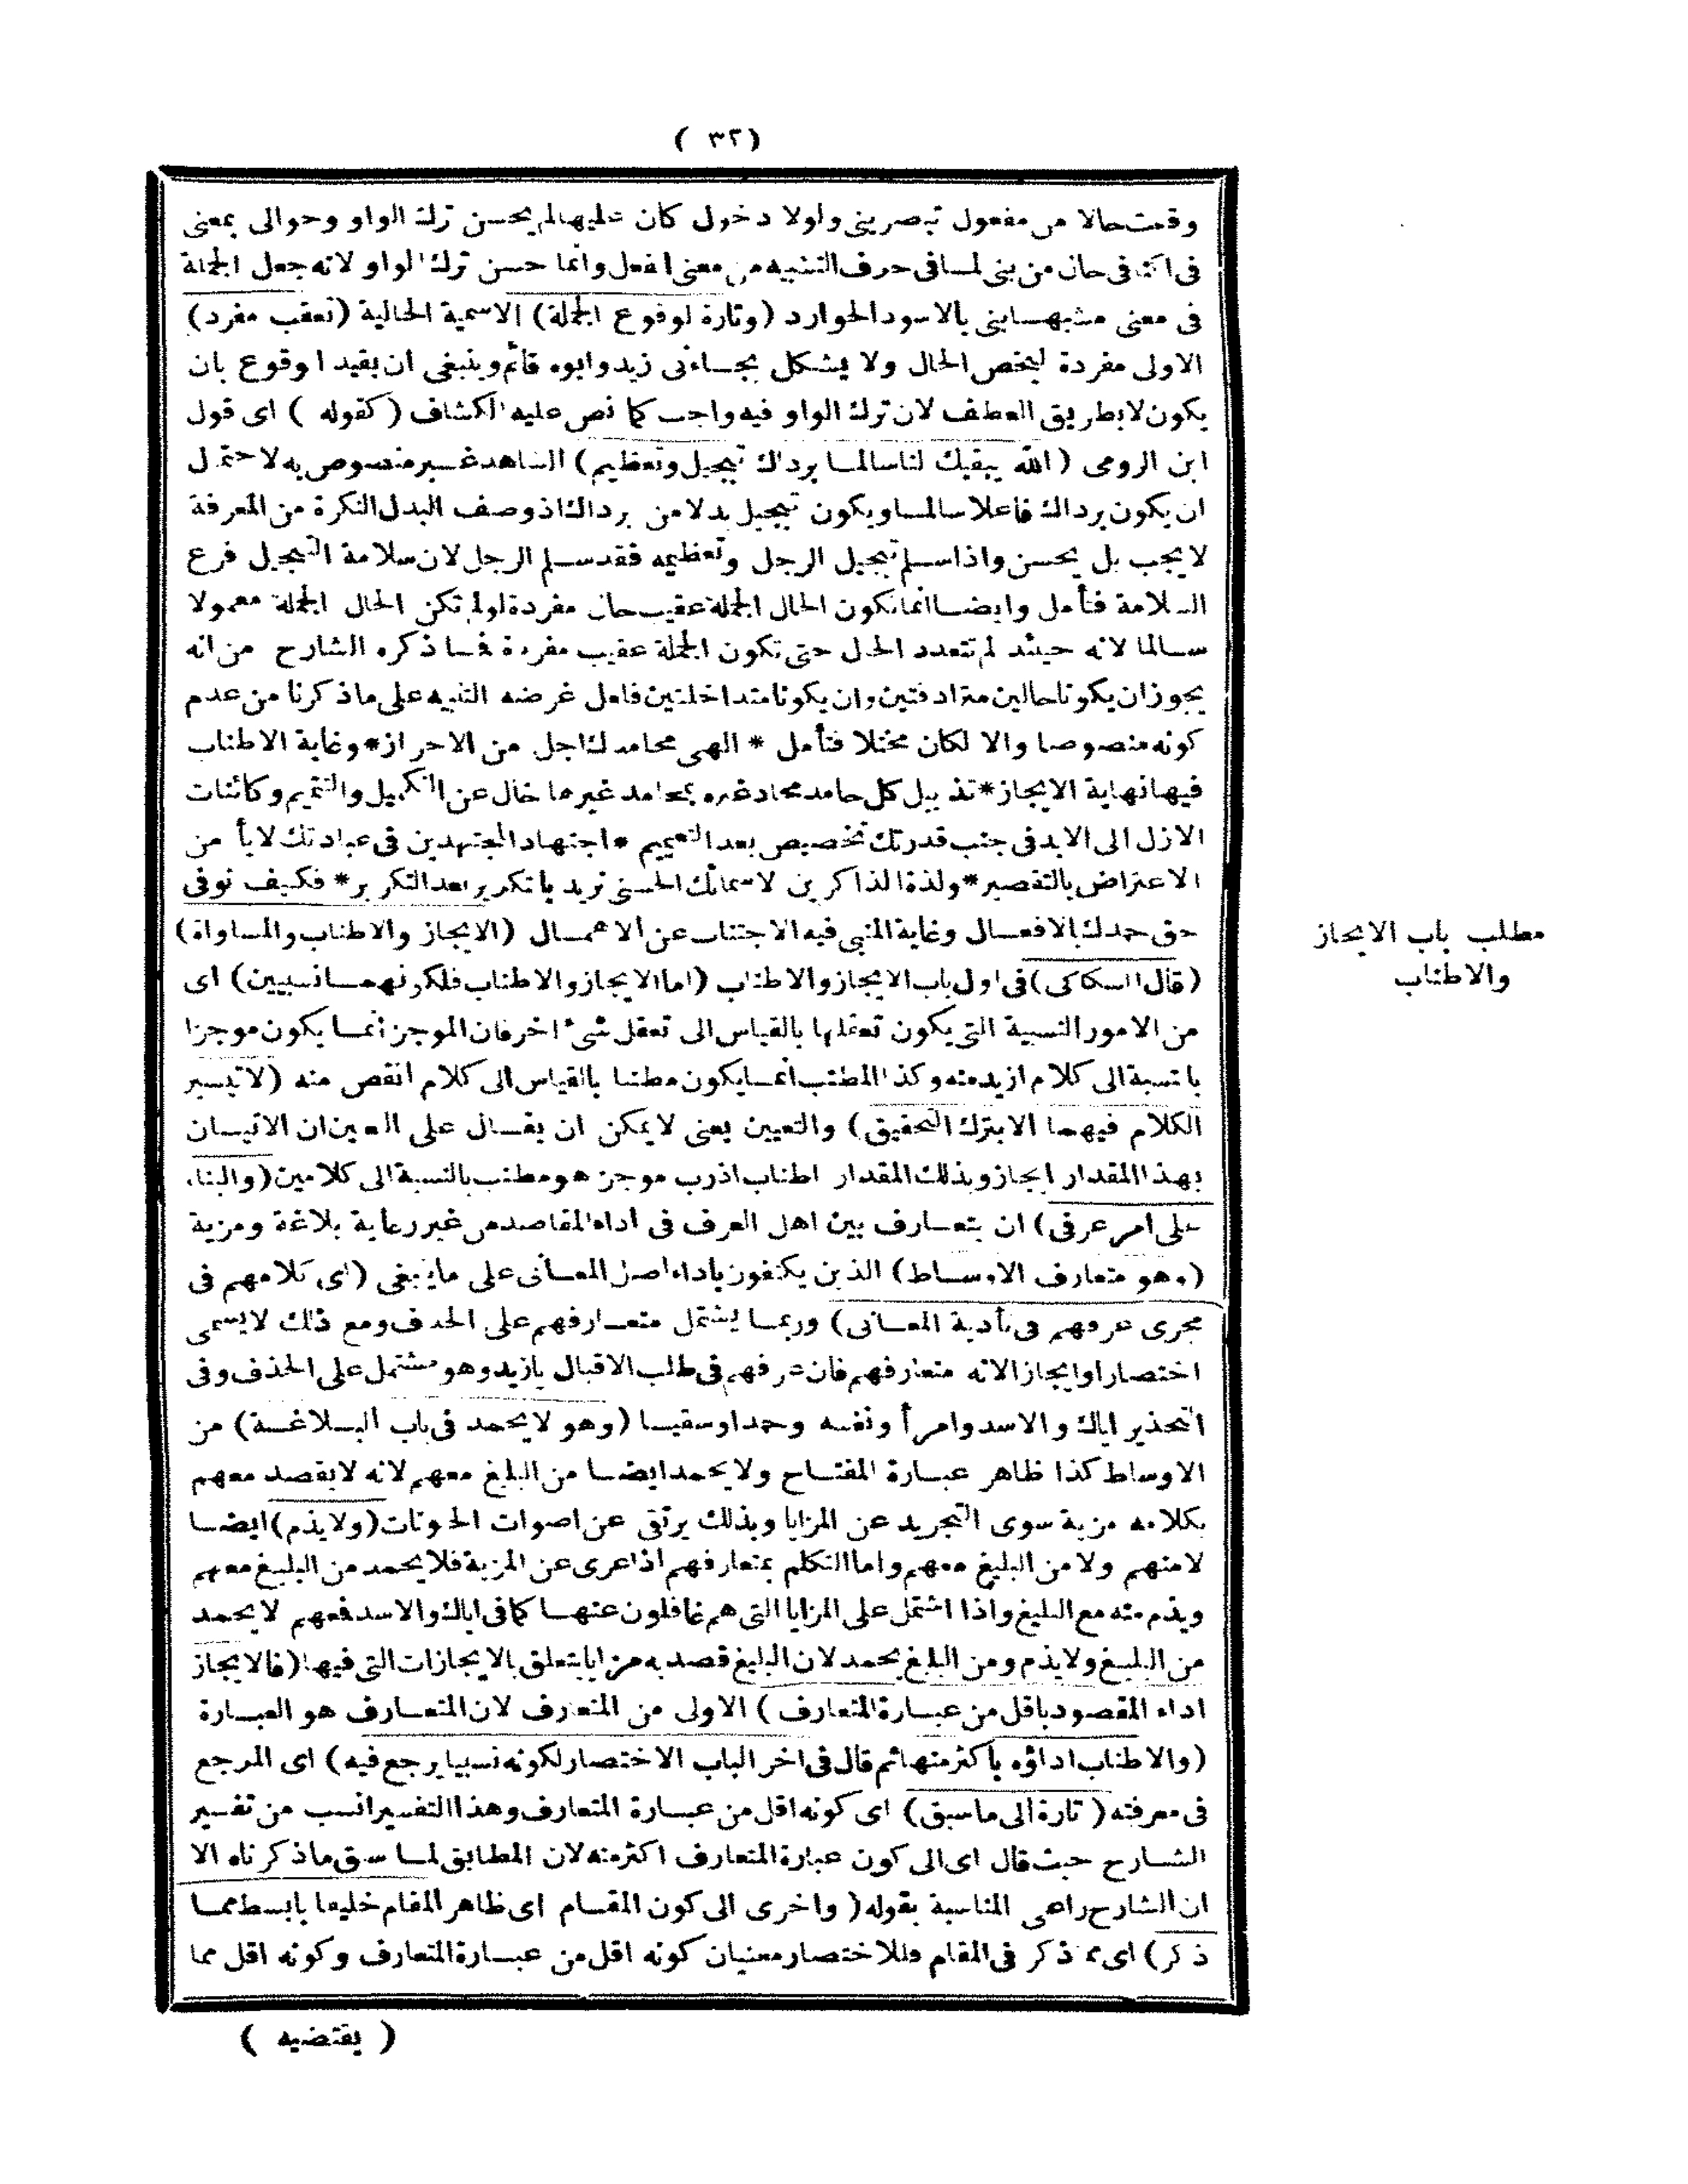 ( ٣٢ )
وقعت حالا من مفعول تبصريني ولولا دخول كان عليها لم يحسن ترك الواو وحوالى بمعنى
فى اكنافى حال من بنى لما فى حرف التنبيه من معنى الفعل وانما حسن ترك الواو لانه جعل الجملة
فى معنى مشبها بنى بالاسود الحوارد (وتارة لوقوع الجملة) الاسمية الحالية (تعقب مفرد)
الاولى مفردة ليخص الحال ولا يشكل بجاءنى زيد وابوه قائم وينبغى ان يقيد الوقوع بان
يكون لا بطريق العطف لان ترك الواو فيه واجب كما نص عليه الكشاف (كقوله ) اى قول
ابن الرومى (الله يبقيك لنا سالما برداك تبجيل وتعظيم) الشاهد غير منصوص به لاحتمال
ان يكون برداك فاعلا سالما ويكون تبجيل بدلا من برداك اذ وصف البدل النكرة من المعرفة
لا يجب بل يحسن واذا سلم تبجيل الرجل وتعظيمه فقد سلم الرجل لان سلامة التبجيل فرع
السلامة فتأمل وايضا انما تكون الحال الجملة عقيب حال مفردة لو لم تكن الحال الجملة معمولا
سالما لانه حينئذ لم تتعدد الحال حتى تكون الجملة عقيب مفردة فما ذكره الشارح من انه
يجوز ان يكونا حالين مترادفتين وان يكونا متداخلتين فلعل غرضه التنبيه على ما ذكرنا من عدم
كونه منصوصا والا لكان مختلا فتأمل * الهى محامدك اجل من الاحراز * وغاية الاطناب
فيها نهاية الايجاز * تذييل كل حامد محامد غيره بمحامد غيرها خال عن التكميل والتتميم وكائنات
الازل الى الابد فى جنب قدرتك تخصيص بعد التعميم * اجتهاد المجتهدين فى عبادتك لا يأ من
الاعتراض بالتقصير * ولذة الذاكرين لاسمائك الحسنى تزيد بالتكرير بعد التكرير * فكيف نوفى
حق حمدك بالافعال وغاية المنى فيه الاجتناب عن الاهمال (الايجاز والاطناب والمساواة)
(قال السكاكى) فى اول باب الايجاز والاطناب (اما الايجاز والاطناب فلكونهما نسبيين) اى
من الامور النسبية التى يكون تعقلها بالقياس الى تعقل شئ اخر فان الموجز انما يكون موجزا
بالنسبة الى كلام ازيد منه وكذا المطنب انما يكون مطنبا بالقياس الى كلام انقص منه (لا تيسر
الكلام فيهما الا بترك التحقيق) والتعيين يعنى لا يمكن ان يقال على العين ان الاتيان
بهذا المقدار ايجاز وبذلك المقدار اطناب اذ رب موجز هو مطنب بالنسبة الى كلامين (والبناء
على امر عرفى) ان يتعارف بين اهل العرف فى اداء المقاصد من غير رعاية بلاغة ومزية
(وهو متعارف الاوساط) الذين يكتفون باداء اصل المعانى على ما ينبغى (اى كلامهم فى
مجرى عرفهم فى تأدية المعانى) وربما يشتمل متعارفهم على الحذف ومع ذلك لا يسمى
اختصارا وايجازا لانه متعارفهم فان عرفهم فى طلب الاقبال يا زيد وهو مشتمل على الحذف وفى
التحذير اياك والاسد وامرأ ونفسه وحمدا وسقيا (وهو لا يحمد فى باب البلاغة) من
الاوساط كذا ظاهر عبارة المفتاح ولا يحمد ايضا من البليغ معهم لانه لا يقصد معهم
بكلامه مزية سوى التجريد عن المزايا وبذلك يرتقى عن اصوات الحيوانات (ولا يذم) ايضا
لا منهم ولا من البليغ معهم واما التكلم بمتعارفهم اذا عرى عن المزية فلا يحمد من البليغ معهم
ويذم منه مع البليغ واذا اشتمل على المزايا التى هم غافلون عنها كما فى اياك والاسد فمعهم لا يحمد
من البليغ ولا يذم ومن البليغ يحمد لان البليغ قصد به مزايا يتعلق بالايجازات التى فيها (فالايجاز
اداء المقصود باقل من عبارة المتعارف ) الاولى من المتعارف لان المتعارف هو العبارة
(والاطناب اداؤه باكثر منها ثم قال فى اخر الباب الاختصار لكونه نسبيا يرجع فيه) اى المرجع
فى معرفته (تارة الى ما سبق) اى كونه اقل من عبارة المتعارف وهذا التفسير انسب من تفسير
الشارح حيث قال اى الى كون عبارة المتعارف اكثر منه لان المطابق لما سبق ما ذكرناه الا
ان الشارح راعى المناسبة بقوله (واخرى الى كون المقام اى ظاهر المقام خليقا بابسط مما
ذكر) اى مما ذكر فى المقام فللاختصار معنيان كونه اقل من عبارة المتعارف وكونه اقل مما
( يقتضيه )
مطلب باب الايجاز
والاطناب